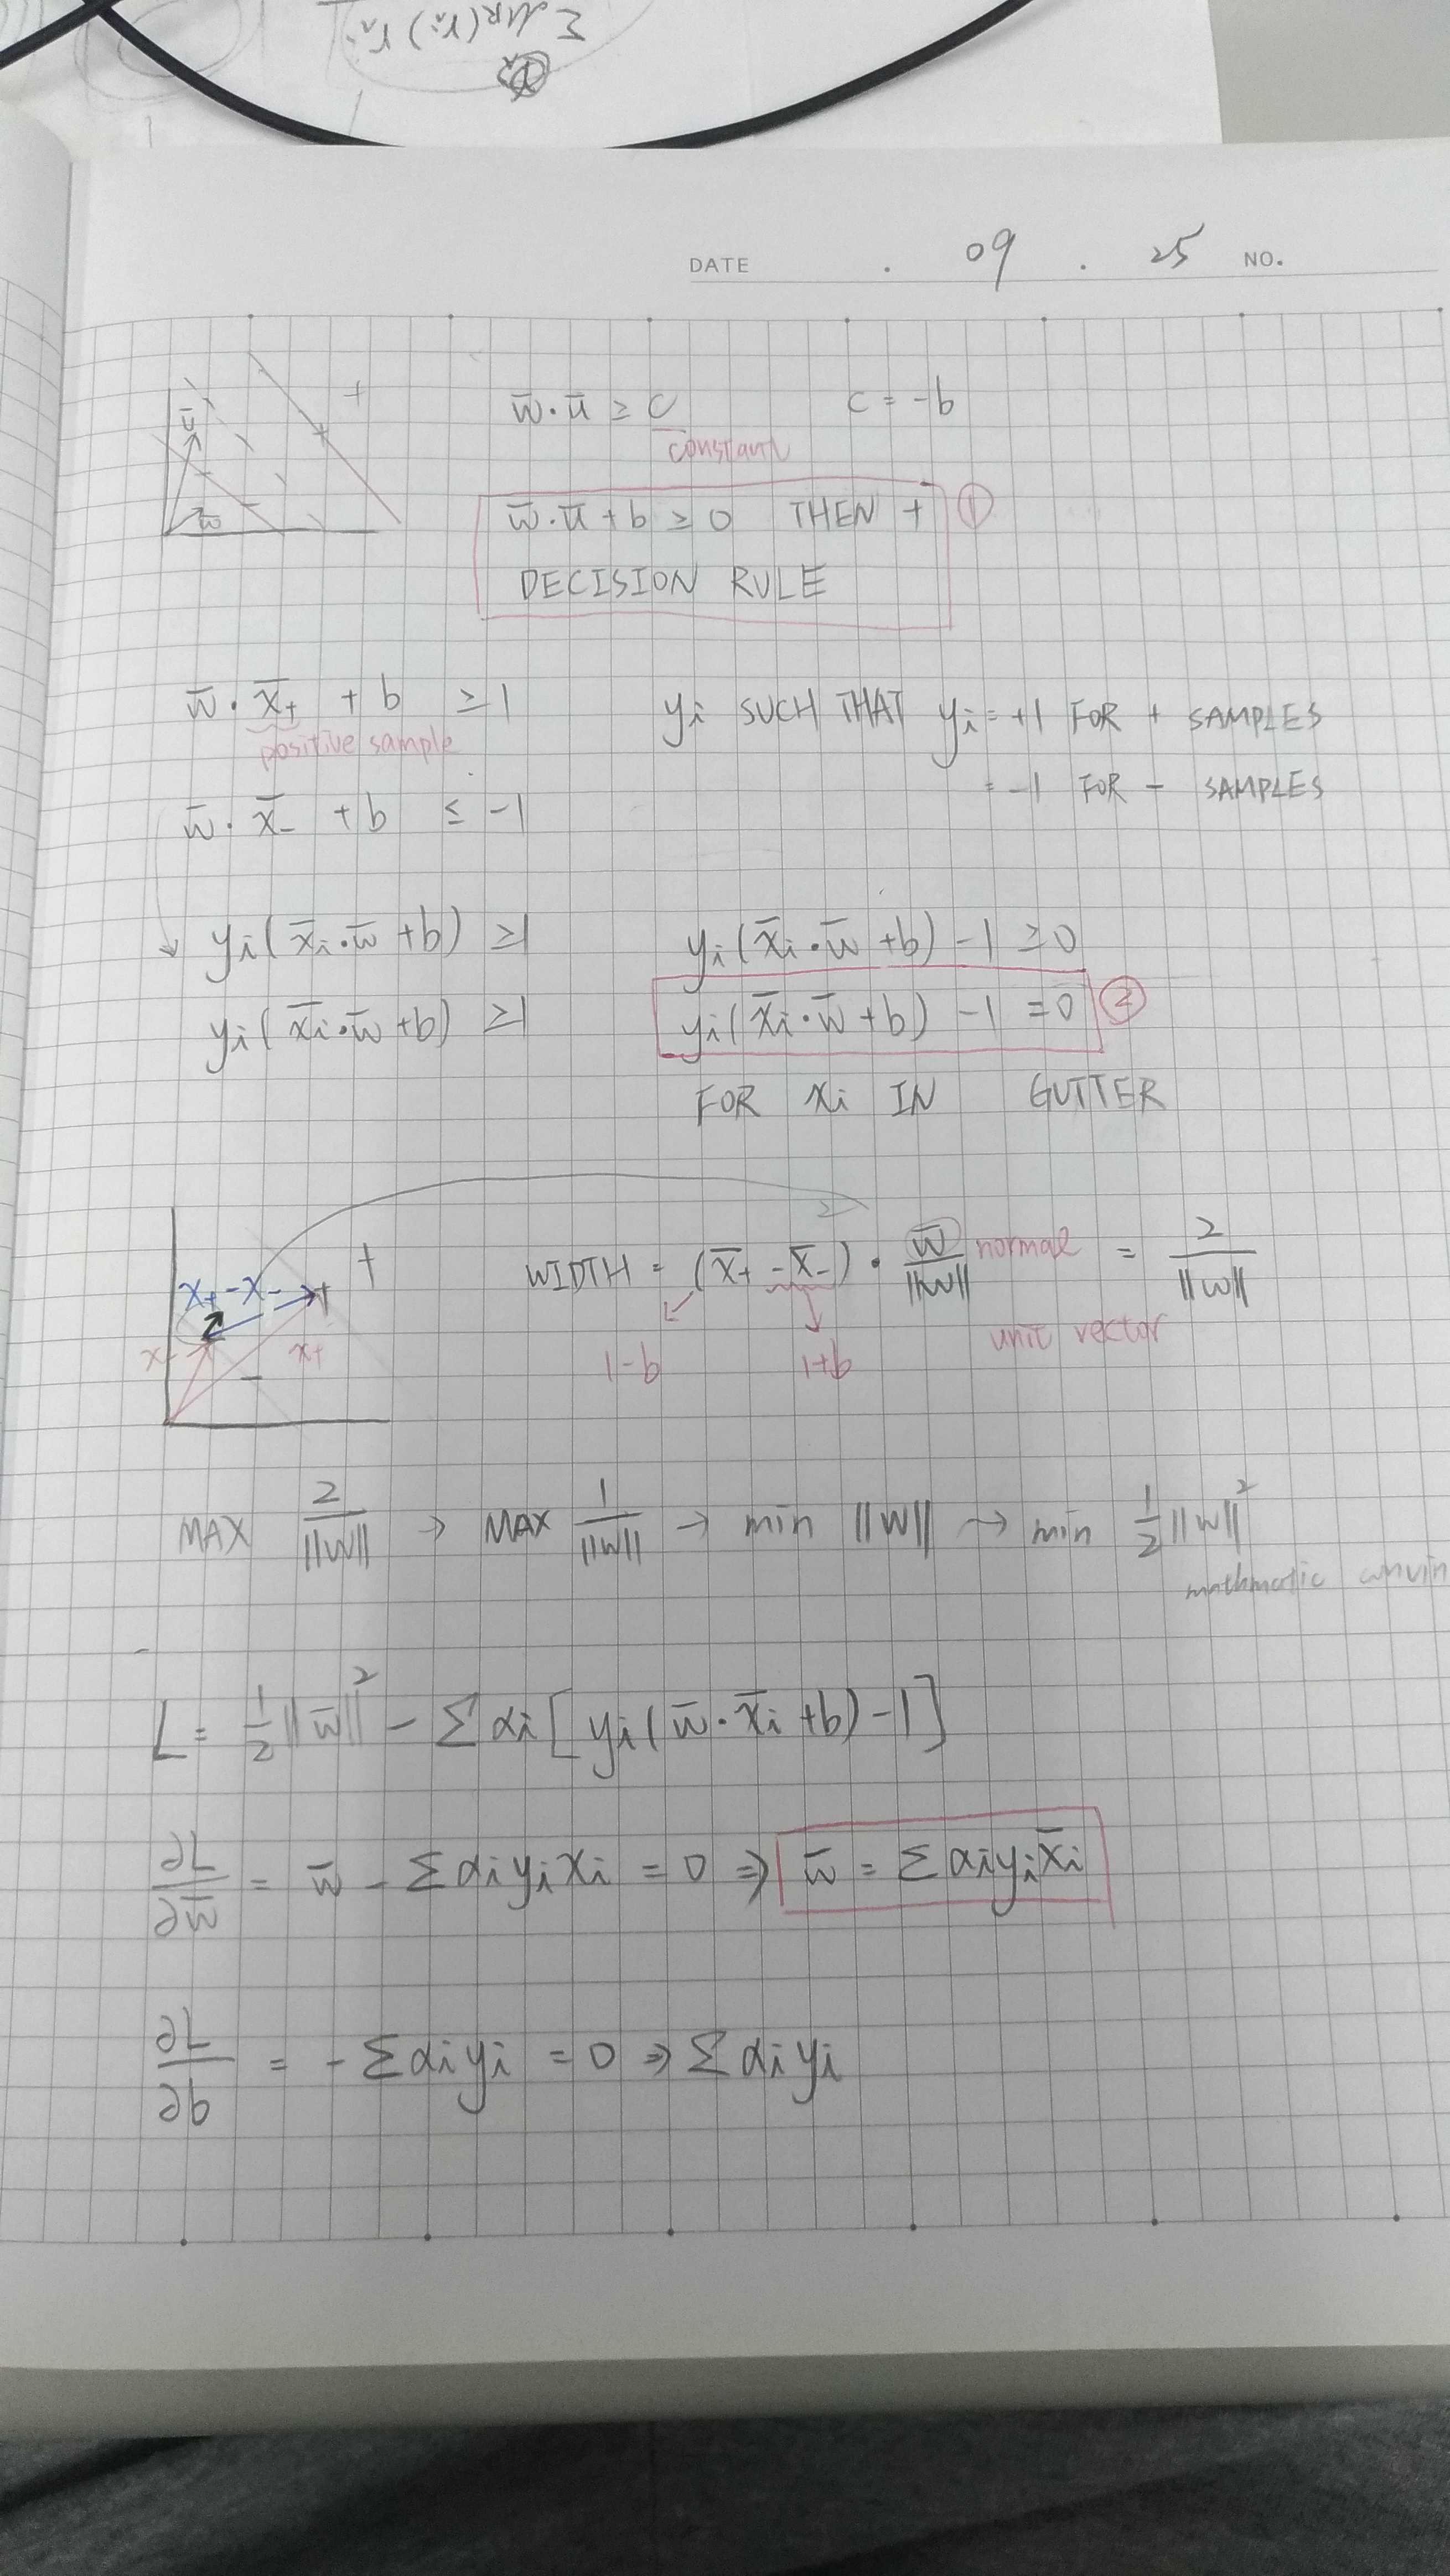 Σ αMR(ri) ri
DATE . 09 . 25 NO.
w̄·ū ≥ C c = -b
constant
w̄·ū + b ≥ 0 THEN + ①
DECISION RULE
ū
w̄
+
w̄·x̄₊ + b ≥ 1 yi SUCH THAT yi = +1 FOR + SAMPLES
positive sample
= -1 FOR - SAMPLES
w̄·x̄₋ + b ≤ -1
yi(x̄i·w̄ + b) ≥ 1 yi(x̄i·w̄ + b) - 1 ≥ 0
yi(x̄i·w̄ + b) ≥ 1 yi(x̄i·w̄ + b) - 1 = 0 ②
FOR xi IN GUTTER
x₊ - x₋ + +
x₋ x₊
-
WIDTH = (x̄₊ - x̄₋) · w̄/||w|| normal = 2/||w||
1-b 1+b unit vector
MAX 2/||w|| → MAX 1/||w|| → min ||w|| → min 1/2 ||w||²
mathmatic
L = 1/2 ||w̄||² - Σ αi [yi(w̄·x̄i + b) - 1]
∂L/∂w̄ = w̄ - Σ αi yi xi = 0 ⇒ w̄ = Σ αi yi x̄i
∂L/∂b = - Σ αi yi = 0 ⇒ Σ αi yi